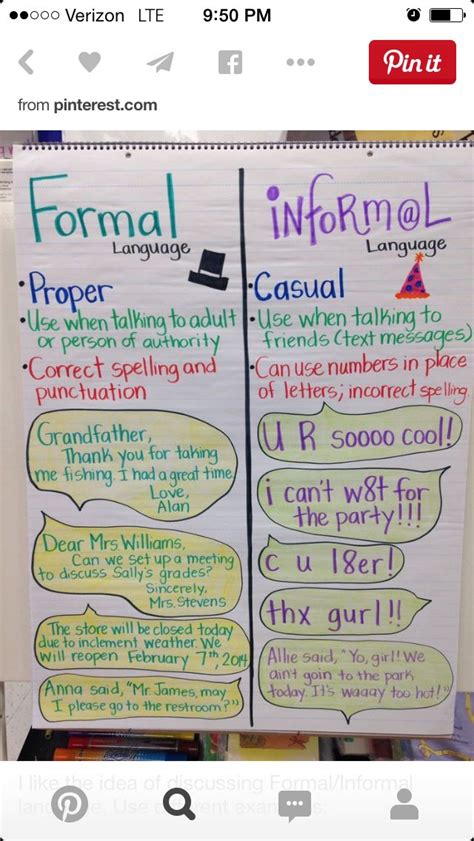 Verizon LTE 9:50 PM
Pin it
from pinterest.com
Formal
Language
•Proper
•Use when talking to adult
or person of authority
•Correct spelling and
punctuation
Grandfather,
Thank you for taking
me fishing. I had a great time.
Love,
Alan
Dear Mrs. Williams,
Can we set up a meeting
to discuss Sally's grades?
Sincerely,
Mrs. Stevens
The store will be closed today
due to inclement weather. We
will reopen February 7th, 2014
Anna said, "Mr. James, may
I please go to the restroom?"
iNfoRm@L
Language
•Casual
•Use when talking to
friends (text messages)
•Can use numbers in place
of letters; incorrect spelling.
U R soooo cool!
i can't w8t for
the party!!!
c u l8er!
thx gurl!!
Allie said, "Yo, girl! We
ain't goin to the park
today. It's waaay too hot!"
I like the idea of discussing Formal/Informal
language. Use different examples: